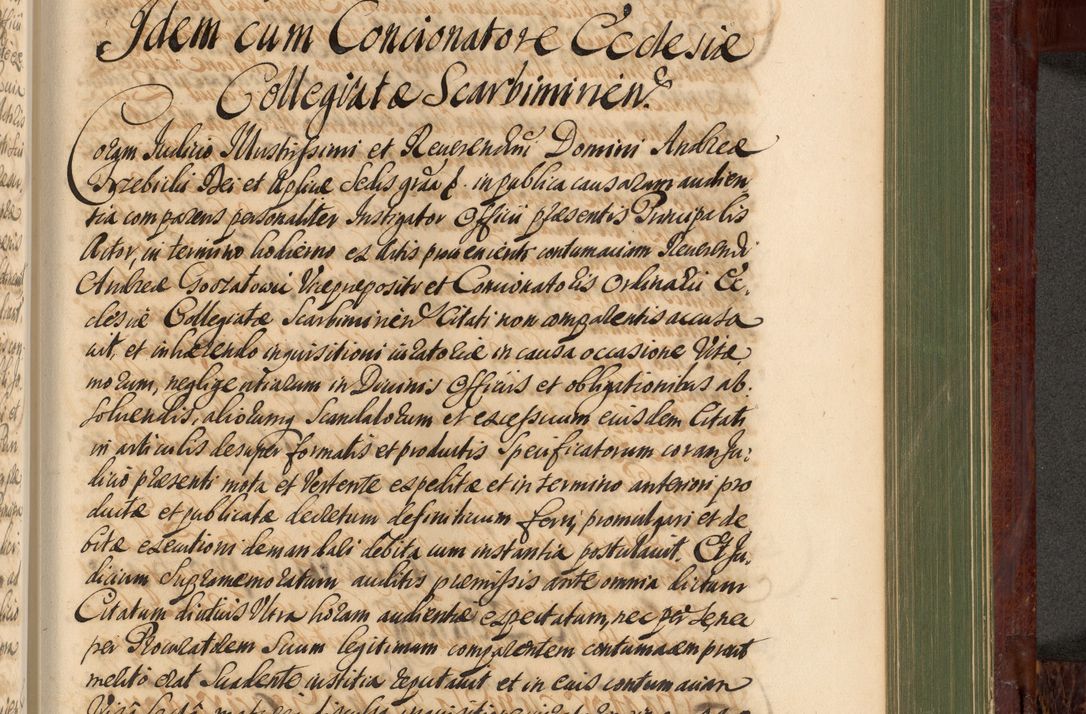 Idem cum Concionatore Ecclesiæ
Collegiatæ Scarbimirien.
Coram Iudicio Illustrissimi et Reverendmi Domini Andreæ
Trzebicki Dei et Aplicæ Sedis grãa &. in publica causarum audien
tia comparens personaliter Instigator Officii præsentis Principalis
Actor, in termino hodierno ex actis proveniente contumaciam Reverendi
Andreæ Gorzatowii Vicepræpositi et Concionatoris Ordinarii Ec,
clesiæ Collegiatæ Scarbimirien Citati non comparentis accusa
vit, et inhærendo inquisitioni iuratoriæ in causa occasione Vitæ
morum, negligentiarum in Divinis Officiis et obligationibus ab,
solvendis, aliorumq Scandalorum et excessuum eiusdem Citati
in articulis desuper formatis et productis Specificatorum coram Iu,
dicio præsenti mota et Vertente expeditæ et in termino anteriori pro
ductæ et publicatæ decretum definitivum ferri, promulgari et de
bitæ executioni demandari debita cum instantia postulavit. Et Iu,
dicium Supramemoratum auditis præmissis ante omnia dictum
Citatum diutius Ultra horam audientiæ expectatum, nec per se, nec
per Procuratorem Suum legitimum comparentem contumacem prout
merito erat Suadente iustitia reputavit et in eius contumaciam